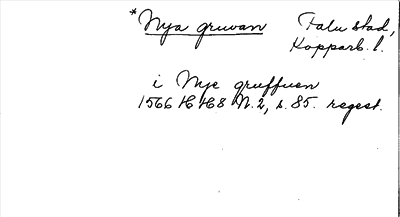 *Nya gruvan Falu stad,
Kopparb. l.
i Nye gruffuen
1566 HH8 N. 2, s. 85. regest.